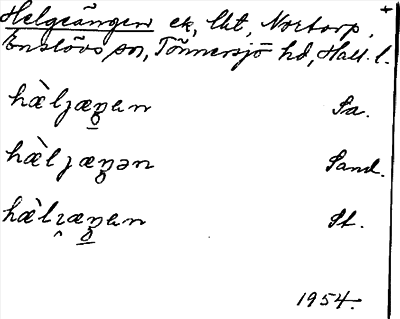 Helgeängen ek, lht, Nortorp,
Enslövs sn, Tönnersjö hd, Hall. l.
hæ̀lȷæŋ̲ɐn Sa.
hæ̀lȷæŋən Sand.
hæ̀lɿ̭æŋ̲ɐn St.
1954.